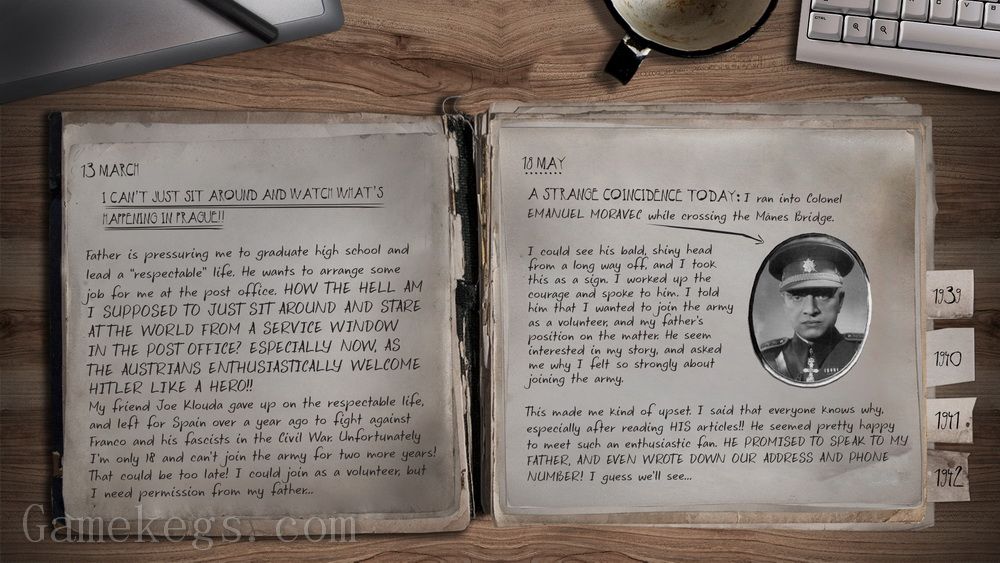 13 MARCH
I CAN'T JUST SIT AROUND AND WATCH WHAT'S
HAPPENING IN PRAGUE!!
Father is pressuring me to graduate high school and
lead a "respectable" life. He wants to arrange some
job for me at the post office. HOW THE HELL AM
I SUPPOSED TO JUST SIT AROUND AND STARE
AT THE WORLD FROM A SERVICE WINDOW
IN THE POST OFFICE? ESPECIALLY NOW, AS
THE AUSTRIANS ENTHUSIASTICALLY WELCOME
HITLER LIKE A HERO!!
My friend Joe Klouda gave up on the respectable life,
and left for Spain over a year ago to fight against
Franco and his fascists in the Civil War. Unfortunately
I'm only 18 and can't join the army for two more years!
That could be too late! I could join as a volunteer, but
I need permission from my father...
18 MAY
A STRANGE COINCIDENCE TODAY: I ran into Colonel
EMANUEL MORAVEC while crossing the Mánes Bridge.
I could see his bald, shiny head
from a long way off, and I took
this as a sign. I worked up the
courage and spoke to him. I told
him that I wanted to join the army
as a volunteer, and my father's
position on the matter. He seem
interested in my story, and asked
me why I felt so strongly about
joining the army.
This made me kind of upset. I said that everyone knows why,
especially after reading HIS articles!! He seemed pretty happy
to meet such an enthusiastic fan. HE PROMISED TO SPEAK TO MY
FATHER, AND EVEN WROTE DOWN OUR ADDRESS AND PHONE
NUMBER! I guess we'll see...
1939
1940
1941
1942
CTRL
Gamekegs.com